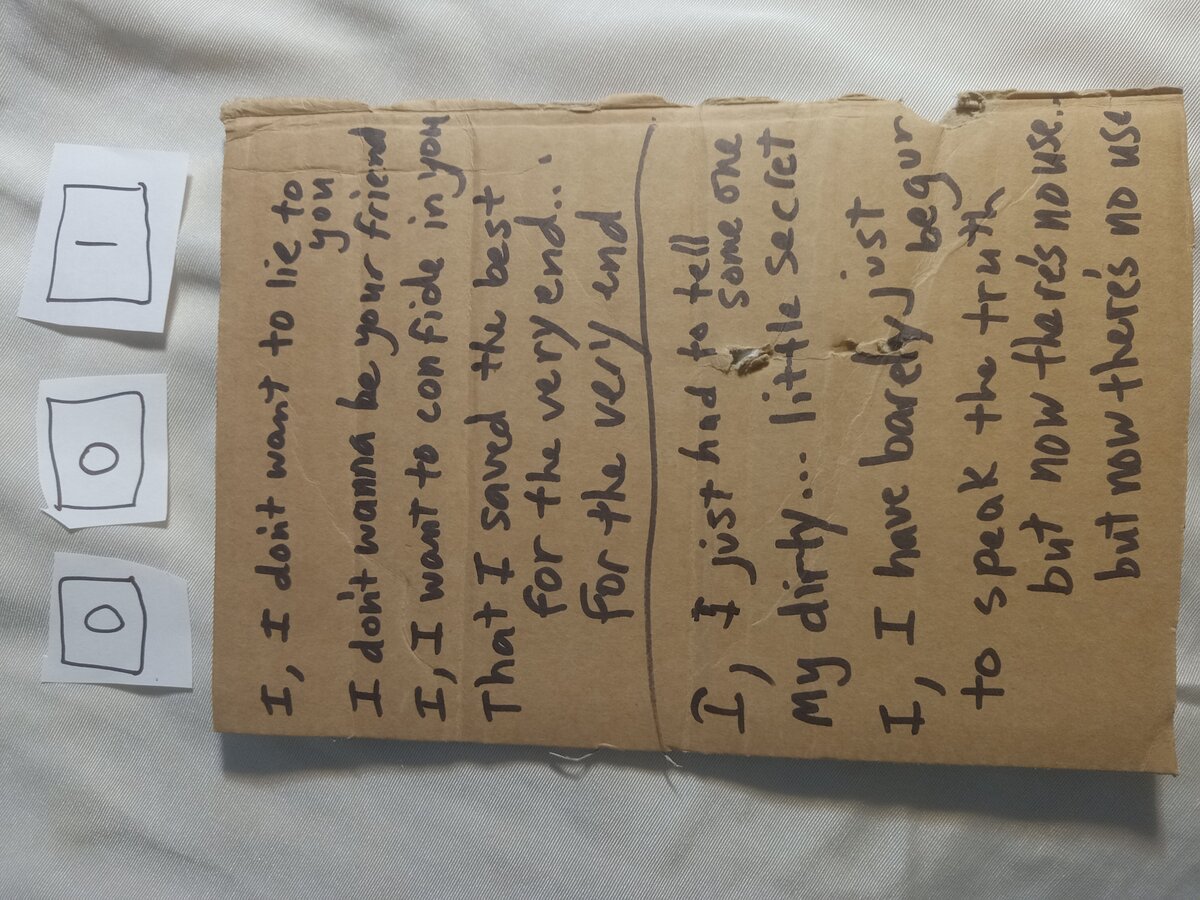 0 0 1
I, I don't want to lie to
you
I don't wanna be your friend
I, I want to confide in you
That I saved the best
for the very end...
for the very end
I, I just had to tell
some one
My dirty... little secret
I, I have barely just
begun
to speak the truth
but now there's no use..
but now there's no use